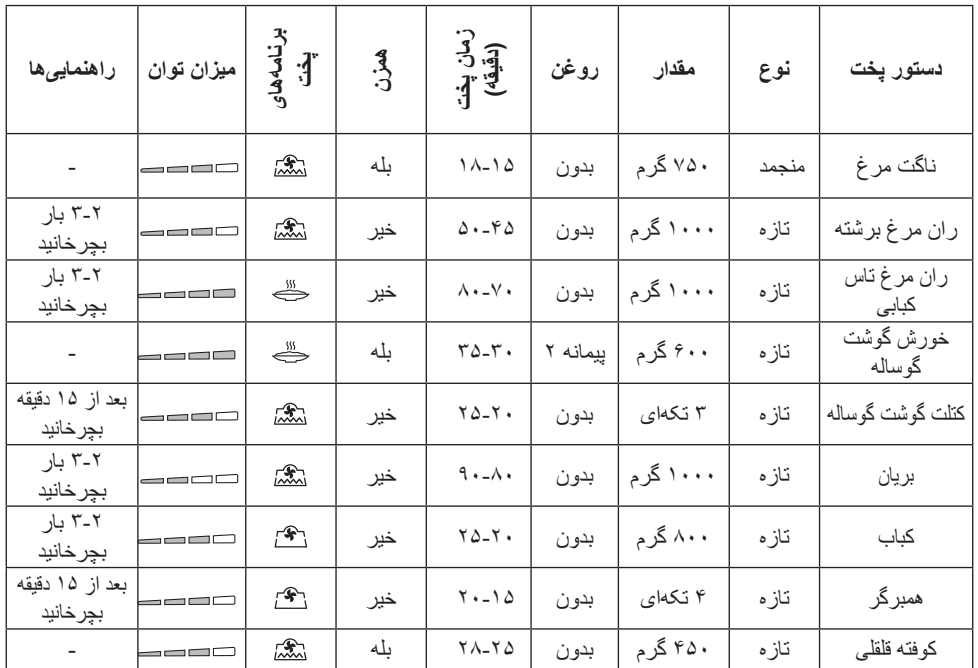 دستور پخت نوع مقدار روغن زمان پخت (دقیقه) همزن برنامه‌های پخت میزان توان راهنمایی‌ها
ناگت مرغ منجمد ۷۵۰ گرم بدون ۱۵-۱۸ بله -
ران مرغ برشته تازه ۱۰۰۰ گرم بدون ۴۵-۵۰ خیر ۲-۳ بار بچرخانید
ران مرغ تاس کبابی تازه ۱۰۰۰ گرم بدون ۷۰-۸۰ خیر ۲-۳ بار بچرخانید
خورش گوشت گوساله تازه ۶۰۰ گرم پیمانه ۲ ۳۰-۳۵ بله -
کتلت گوشت گوساله تازه ۳ تکه‌ای بدون ۲۰-۲۵ خیر بعد از ۱۵ دقیقه بچرخانید
بریان تازه ۱۰۰۰ گرم بدون ۸۰-۹۰ خیر ۲-۳ بار بچرخانید
کباب تازه ۸۰۰ گرم بدون ۲۰-۲۵ خیر ۲-۳ بار بچرخانید
همبرگر تازه ۴ تکه‌ای بدون ۱۵-۲۰ خیر بعد از ۱۵ دقیقه بچرخانید
کوفته قلقلی تازه ۴۵۰ گرم بدون ۲۵-۲۸ بله -